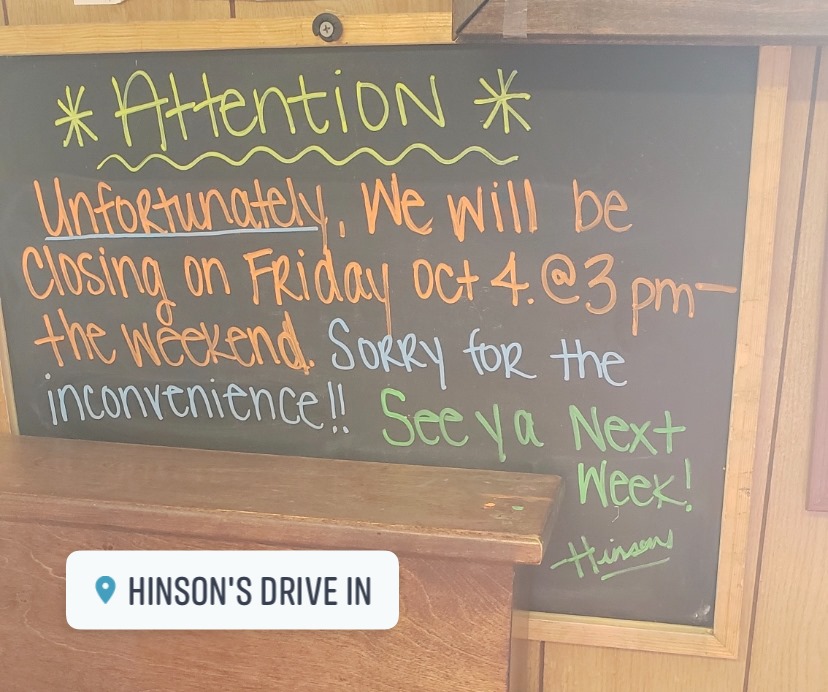 * Attention *
Unfortunately, We will be
closing on Friday Oct 4. @ 3 pm-
the weekend. Sorry for the
inconvenience!! See ya Next
Week!
Hinsons
HINSON'S DRIVE IN